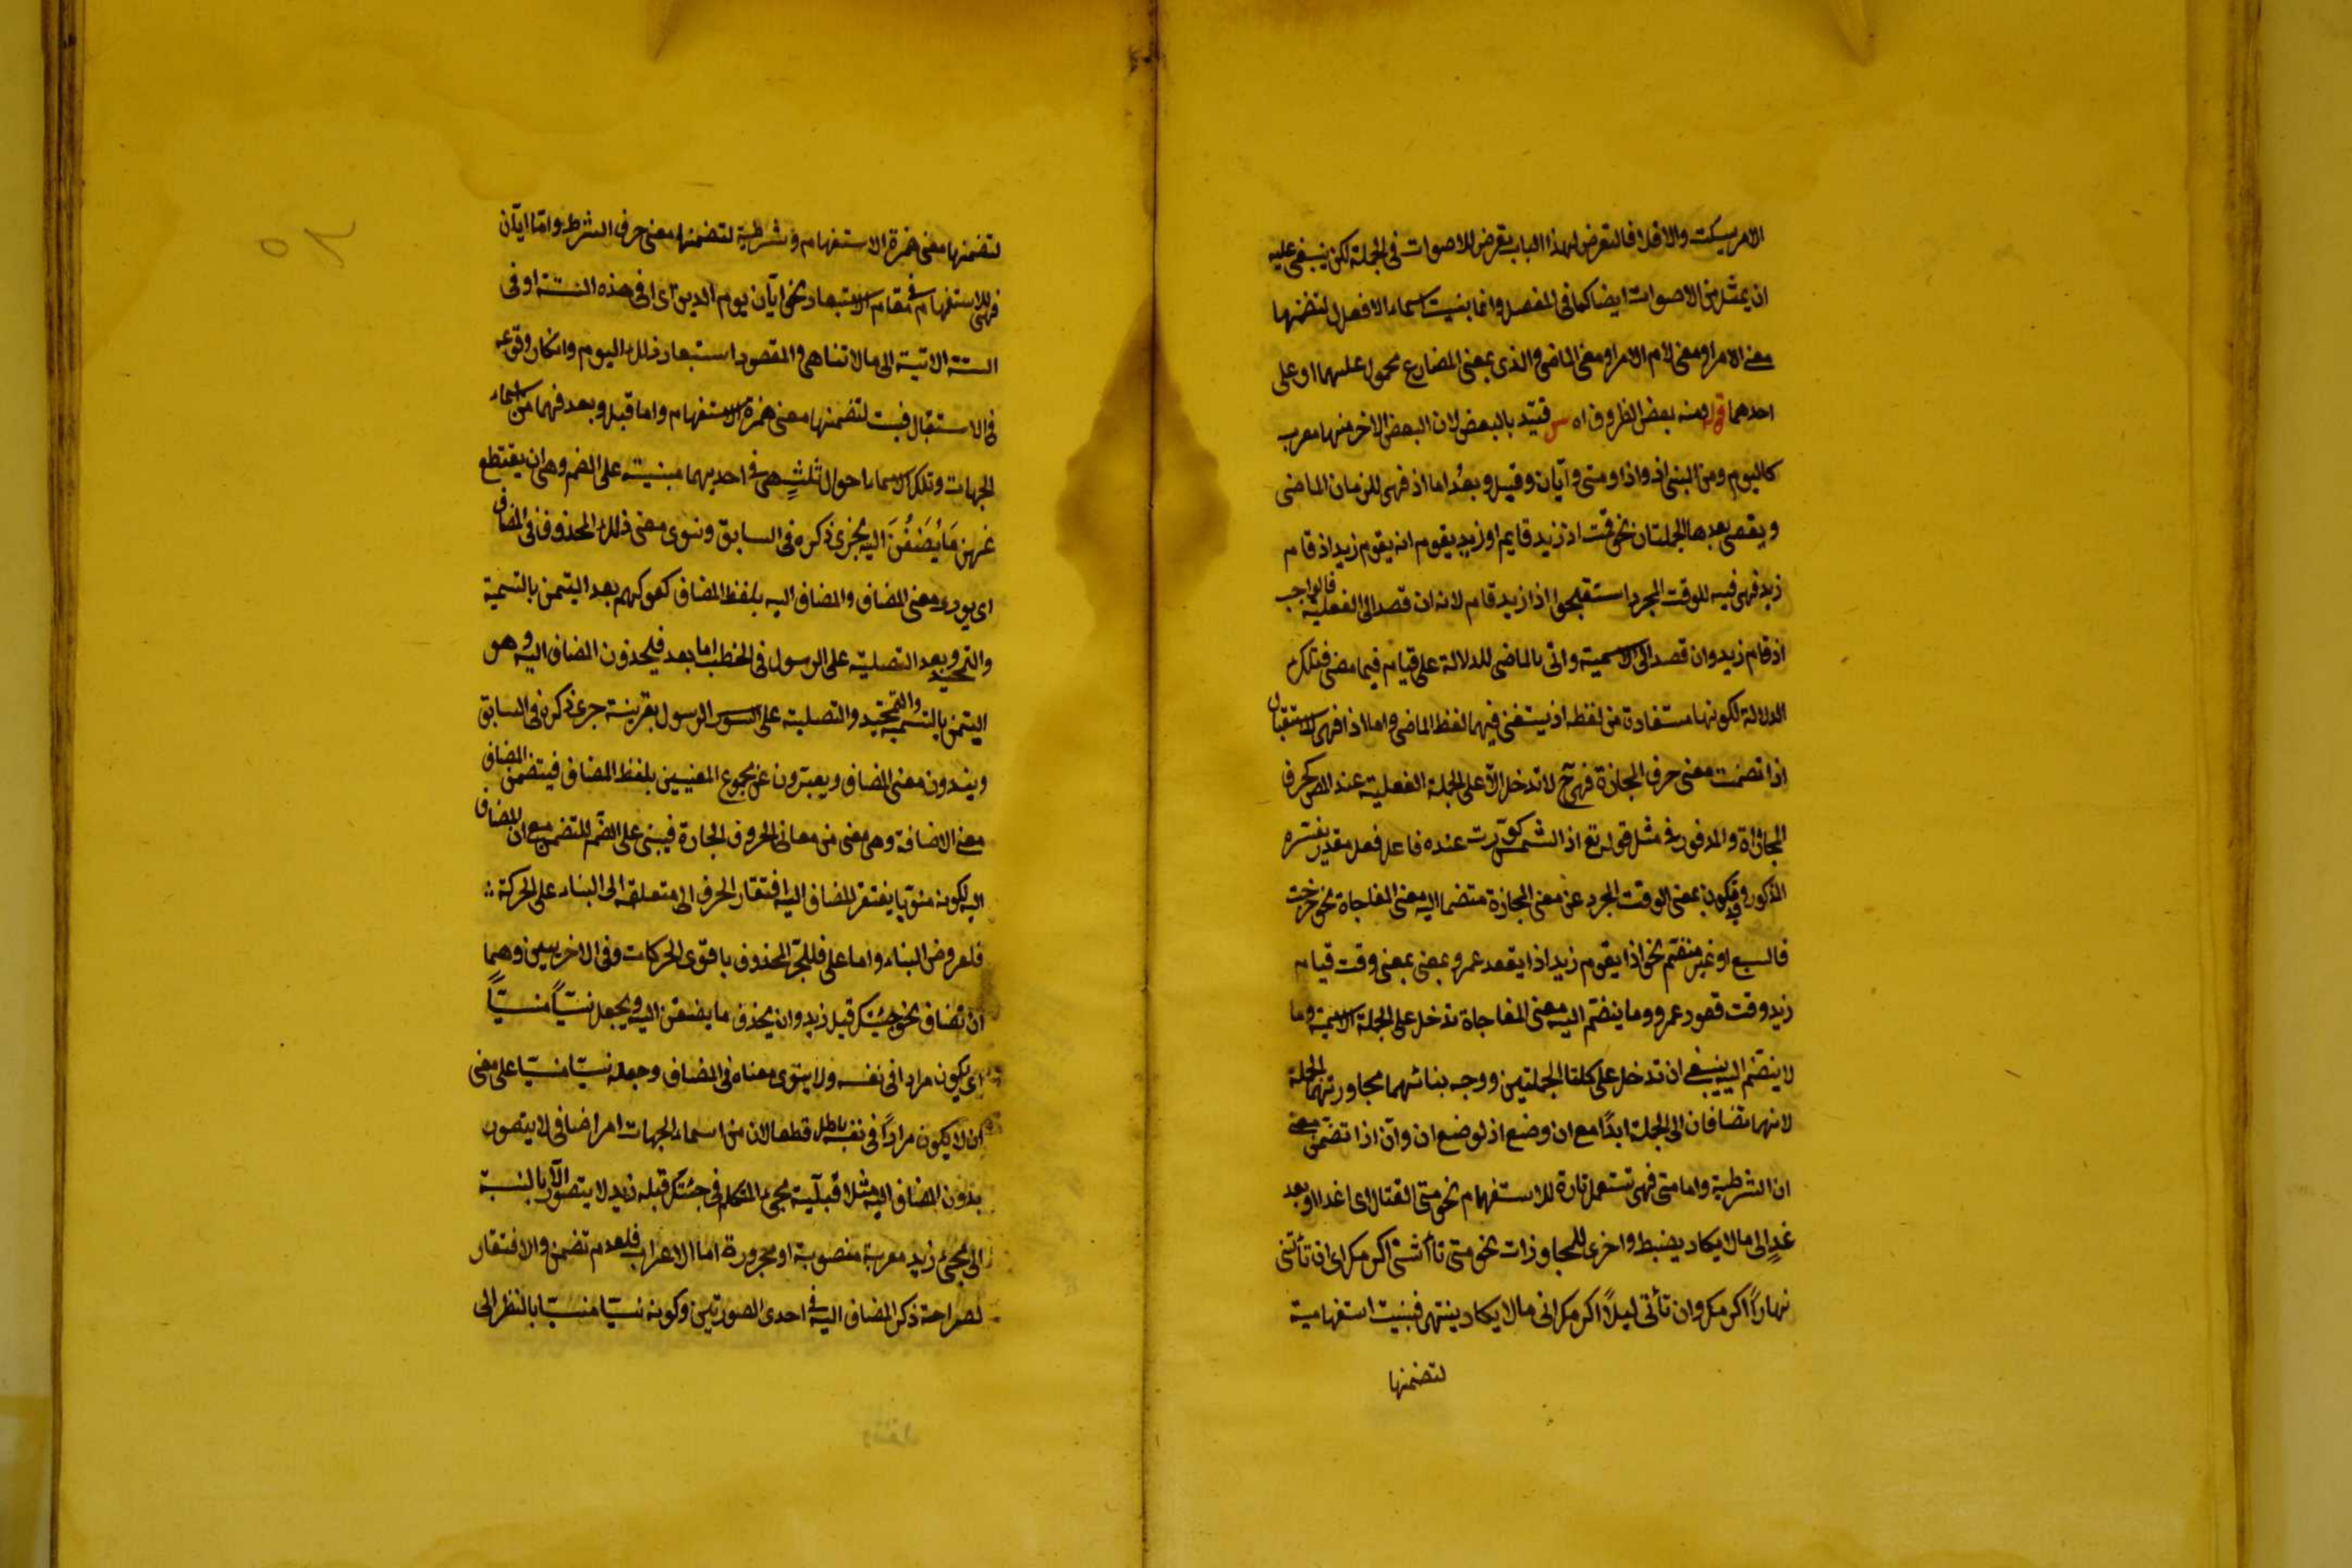 الامر بسكت والا فلا فالتعرض لهذا الباب تعرض للاصوات فى الجملة لكن ينبغى عليه
ان يمثل من الاصوات ايضا كما فى المفصل وانما بنيت اسماء الافعال لتضمنها
معنى الامر او معنى لام الامر او معنى الماضى والذى بمعنى المضارع محمول عليهما او على
احدهما قوله ومنه بعض الظروف اه س قيّد بالبعض لان البعض الاخر منها معرب
كاليوم ومن البنى اذ واذا ومتى وآيان وقبل وبعدُ اما اذ فهى للزمان الماضى
ويقع بعدها الجملتان نحو قمت اذ زيد قايم او زيد يقوم انه يقوم زيد اذ قام
زيد فهى فيه للوقت المجرد استقبحوا اذا زيد قام لانه ان قصد الى الفعلية فالواجب
اذ قام زيد وان قصد الى الاسمية واتى بالماضى للدلالة على قيامه فيما مضى فتلك
الدلالة لكونها مستفادة من لفظه اذ يستغنى فيها لفظ الماضى واما اذا فهى للاستقبال
اذا تضمنت معنى حرف المجازاة فهى ح لا تدخل الّا على الجملة الفعلية عند المص كحرف
المجازاة والمرفوع فى مثل قوله تع اذا الشمس كوّرت عنده فاعل فعل مقدر يفسّره
المذكور وقد يكون بمعنى الوقت المجرد عن معنى المجازاة متضما اليه معنى المفاجاة نحو خرجت
فالسبع او غير منضم نحو اذا يقوم زيد اذا يقعد عمرو بمعنى بمعنى وقت قيام
زيد وقت قعود عمرو وما ينضم اليه معنى المفاجاة تدخل على الجملة الاسمية وما
لا ينضم اليه ينبغى ان تدخل على كلتا الجملتين ووجه بنائهما مجاورتهما لجملة
لانهما تضافان الى الجملة ابدًا مع ان وضع اذ لوضع ان وان اذا تضمن معنى
ان الشرطية واما متى فهى تستعمل تارة للاستفهام نحو متى القتال اى اغدا او بعد
غدٍ الى ما لا يكاد يضبط واخرى للمجاوزات نحو متى تأتنى اكرمك اى ان تأتنى
نهاراً اكرمك وان تأتى ليلاً اكرمك الى ما لا يكاد ينتهى فبنيت استفهامية
لتضمنها
لتضمنها معنى همزة الاستفهام وشرطية لتضمنها معنى حرف الشرط واما ايّان
فهى للاستفهام فى مقام الاستبعاد نحو ايّان يوم الدين اى افى هذه السنة او فى
السنة الاتية الى ما لا تناهى والمقصود استبعاد ذلك اليوم وانكار وقوعه
فى الاستقبال فبنيت لتضمنها معنى همزة الاستفهام واما قبل وبعد فهما من اسماء
الجهات وتلك الاسماء احوال ثلثٍ هى فى احديهما مبنية على الضم وهى ان يقتطع
عنهن مَا يُضَفْنَ اليه يجرى ذكره فى السابق وينوى معنى ذلك المحذوف فى المضاف
اى يودى معنى المضاف والمضاف اليه بلفظ المضاف كقولهم بعد اليتمن بالتسمية
والتحميد وبعد التصلية على الرسول فى الخطب اما بعد فيحذفون المضاف اليه وهو
اليتمن بالتسمية والتحميد والتصلية على الرسول بقرينة جرى ذكره فى السابق
ويندون معنى المضاف ويعبّرون عن مجموع المعنيين بلفظ المضاف فيتضمن المضاف
معنى الاضافة وهى معنى من معانى الحروف الجارة فيبنى على الضم للتضمن مع ان المضاف
اليه لكونه منويا يفتقر المضاف اليه افتقار الحرف الى متعلقه الى البناء على الحركة
فلعروض البناء واما على فللجبر المحذوف باقوى الحركات وفى الاخريين وهما
ان تضاف نحو جئتك قبل زيد وان يحذف ما يضفن اليه ويجعل نسيّاً منسيّاً
اى يكون مرادا فى نفسه ولا ينوى معناه فى المضاف وجعله نسيّا منسيّا على معنى
ان لا يكون مراداً فى نفسه باطل قطعا لان من اسماء الجهات امر اضافى لا يتصور
بدون المضاف اليه مثلا قبليّة مجىء المتكلم فى جئتك قبله زيد لا يتصور الا بالنسبة
الى مجىء زيد معربة منصوبة او مجرورة اما الاعراب فلعدم تضمن والافتقار
لصراحة ذكر المضاف اليه فى احدى الصورتين وكونه نسيّا منسيّا بالنظر الى